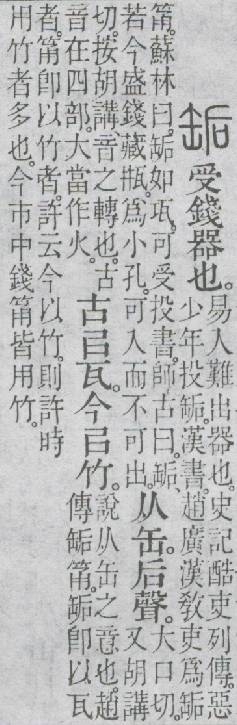 缿受錢器也。
易入難出器也。史記酷吏列傳。惡
少年投缿。漢書。趙廣漢敎吏爲缿
筩。蘇林曰。缿如瓨。可受投書。師古曰。缿、
若今盛錢藏瓶。爲小孔。可入而不可出。
从缶。后聲。
大口切。
又胡講
切。按胡講、音之轉也。古
音在四部。大當作火。
古㠯瓦。今㠯竹。
說从缶之意也。趙
傳缿筩。缿卽以瓦
者。筩卽以竹者。許云今以竹。則許時
用竹者多也。今市中錢筩皆用竹。